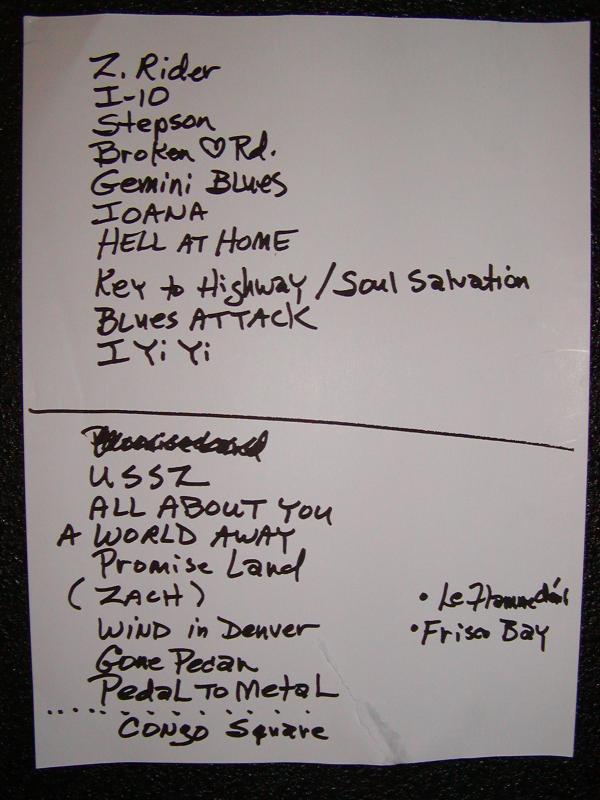 Z. Rider
I-10
Stepson
Broken ♡ Rd.
Gemini Blues
IOANA
HELL AT HOME
Key to Highway / Soul Salvation
Blues ATTACK
I Yi Yi
USSZ
ALL ABOUT YOU
A WORLD AWAY
Promise Land
(ZACH)
WIND in Denver
• Le Flamme
• Frisco Bay
Gone Pecan
PedaL To MetaL
CONGO Square